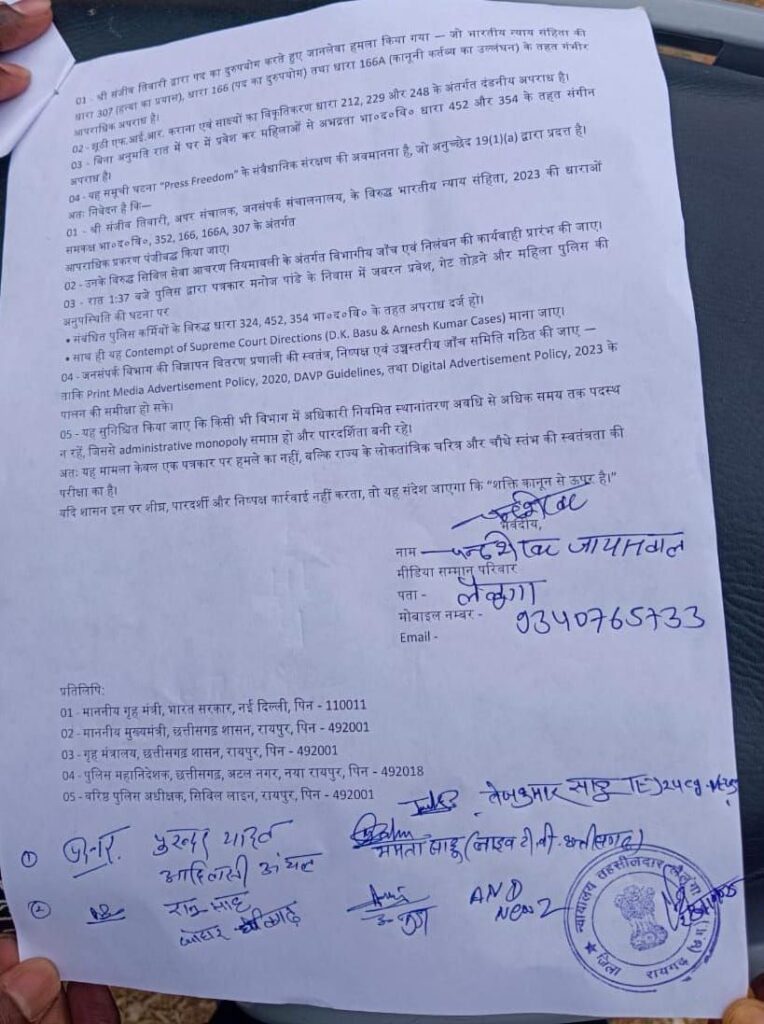 01 - श्री संजीव तिवारी द्वारा पद का दुरुपयोग करते हुए जानलेवा हमला किया गया — जो भारतीय न्याय संहिता की
धारा 307 (हत्या का प्रयास), धारा 166 (पद का दुरुपयोग) तथा धारा 166A (कानूनी कर्तव्य का उल्लंघन) के तहत गंभीर
आपराधिक अपराध है।
02 - झूठी एफ.आई.आर. कराना एवं साक्ष्यों का विकृतिकरण धारा 212, 229 और 248 के अंतर्गत दंडनीय अपराध है।
03 - बिना अनुमति रात में घर में प्रवेश कर महिलाओं से अभद्रता भा०द०वि० धारा 452 और 354 के तहत संगीन
अपराध है।
04 - यह समूची घटना "Press Freedom" के संवैधानिक संरक्षण की अवमानना है, जो अनुच्छेद 19(1)(a) द्वारा प्रदत्त है।
अतः निवेदन है कि—
01 - श्री संजीव तिवारी, अपर संचालक, जनसंपर्क संचालनालय, के विरुद्ध भारतीय न्याय संहिता, 2023 की धाराओं
समकक्ष भा०द०वि०, 352, 166, 166A, 307 के अंतर्गत
आपराधिक प्रकरण पंजीबद्ध किया जाए।
02 - उनके विरुद्ध सिविल सेवा आचरण नियमावली के अंतर्गत विभागीय जाँच एवं निलंबन की कार्यवाही प्रारंभ की जाए।
03 - रात 1:37 बजे पुलिस द्वारा पत्रकार मनोज पांडे के निवास में जबरन प्रवेश, गेट तोड़ने और महिला पुलिस की
अनुपस्थिति की घटना पर
• संबंधित पुलिस कर्मियों के विरुद्ध धारा 324, 452, 354 भा०द०वि० के तहत अपराध दर्ज हो।
• साथ ही यह Contempt of Supreme Court Directions (D.K. Basu & Arnesh Kumar Cases) माना जाए।
04 - जनसंपर्क विभाग की विज्ञापन वितरण प्रणाली की स्वतंत्र, निष्पक्ष एवं उच्चस्तरीय जाँच समिति गठित की जाए —
ताकि Print Media Advertisement Policy, 2020, DAVP Guidelines, तथा Digital Advertisement Policy, 2023 के
पालन की समीक्षा हो सके।
05 - यह सुनिश्चित किया जाए कि किसी भी विभाग में अधिकारी नियमित स्थानांतरण अवधि से अधिक समय तक पदस्थ
न रहें, जिससे administrative monopoly समाप्त हो और पारदर्शिता बनी रहे।
अतः यह मामला केवल एक पत्रकार पर हमले का नहीं, बल्कि राज्य के लोकतांत्रिक चरित्र और चौथे स्तंभ की स्वतंत्रता की
परीक्षा का है।
यदि शासन इस पर शीघ्र, पारदर्शी और निष्पक्ष कार्रवाई नहीं करता, तो यह संदेश जाएगा कि "शक्ति कानून से ऊपर है।"
भवदीय,
नाम — चन्द्रशेखर जायसवाल
मीडिया सम्मान परिवार
पता - लैलूंगा
मोबाइल नम्बर - 9340765733
Email -
प्रतिलिपि:
01 - माननीय गृह मंत्री, भारत सरकार, नई दिल्ली, पिन - 110011
02 - माननीय मुख्यमंत्री, छत्तीसगढ़ शासन, रायपुर, पिन - 492001
03 - गृह मंत्रालय, छत्तीसगढ़ शासन, रायपुर, पिन - 492001
04 - पुलिस महानिदेशक, छत्तीसगढ़, अटल नगर, नया रायपुर, पिन - 492018
05 - वरिष्ठ पुलिस अधीक्षक, सिविल लाइन, रायपुर, पिन - 492001
तेजकुमार साहू
① यादव ममता साहू (लाइव टी.वी. छत्तीसगढ़)
②  साहू AND
News
न्यायालय तहसीलदार लैलूंगा
जिला रायगढ़ (छ.ग.)